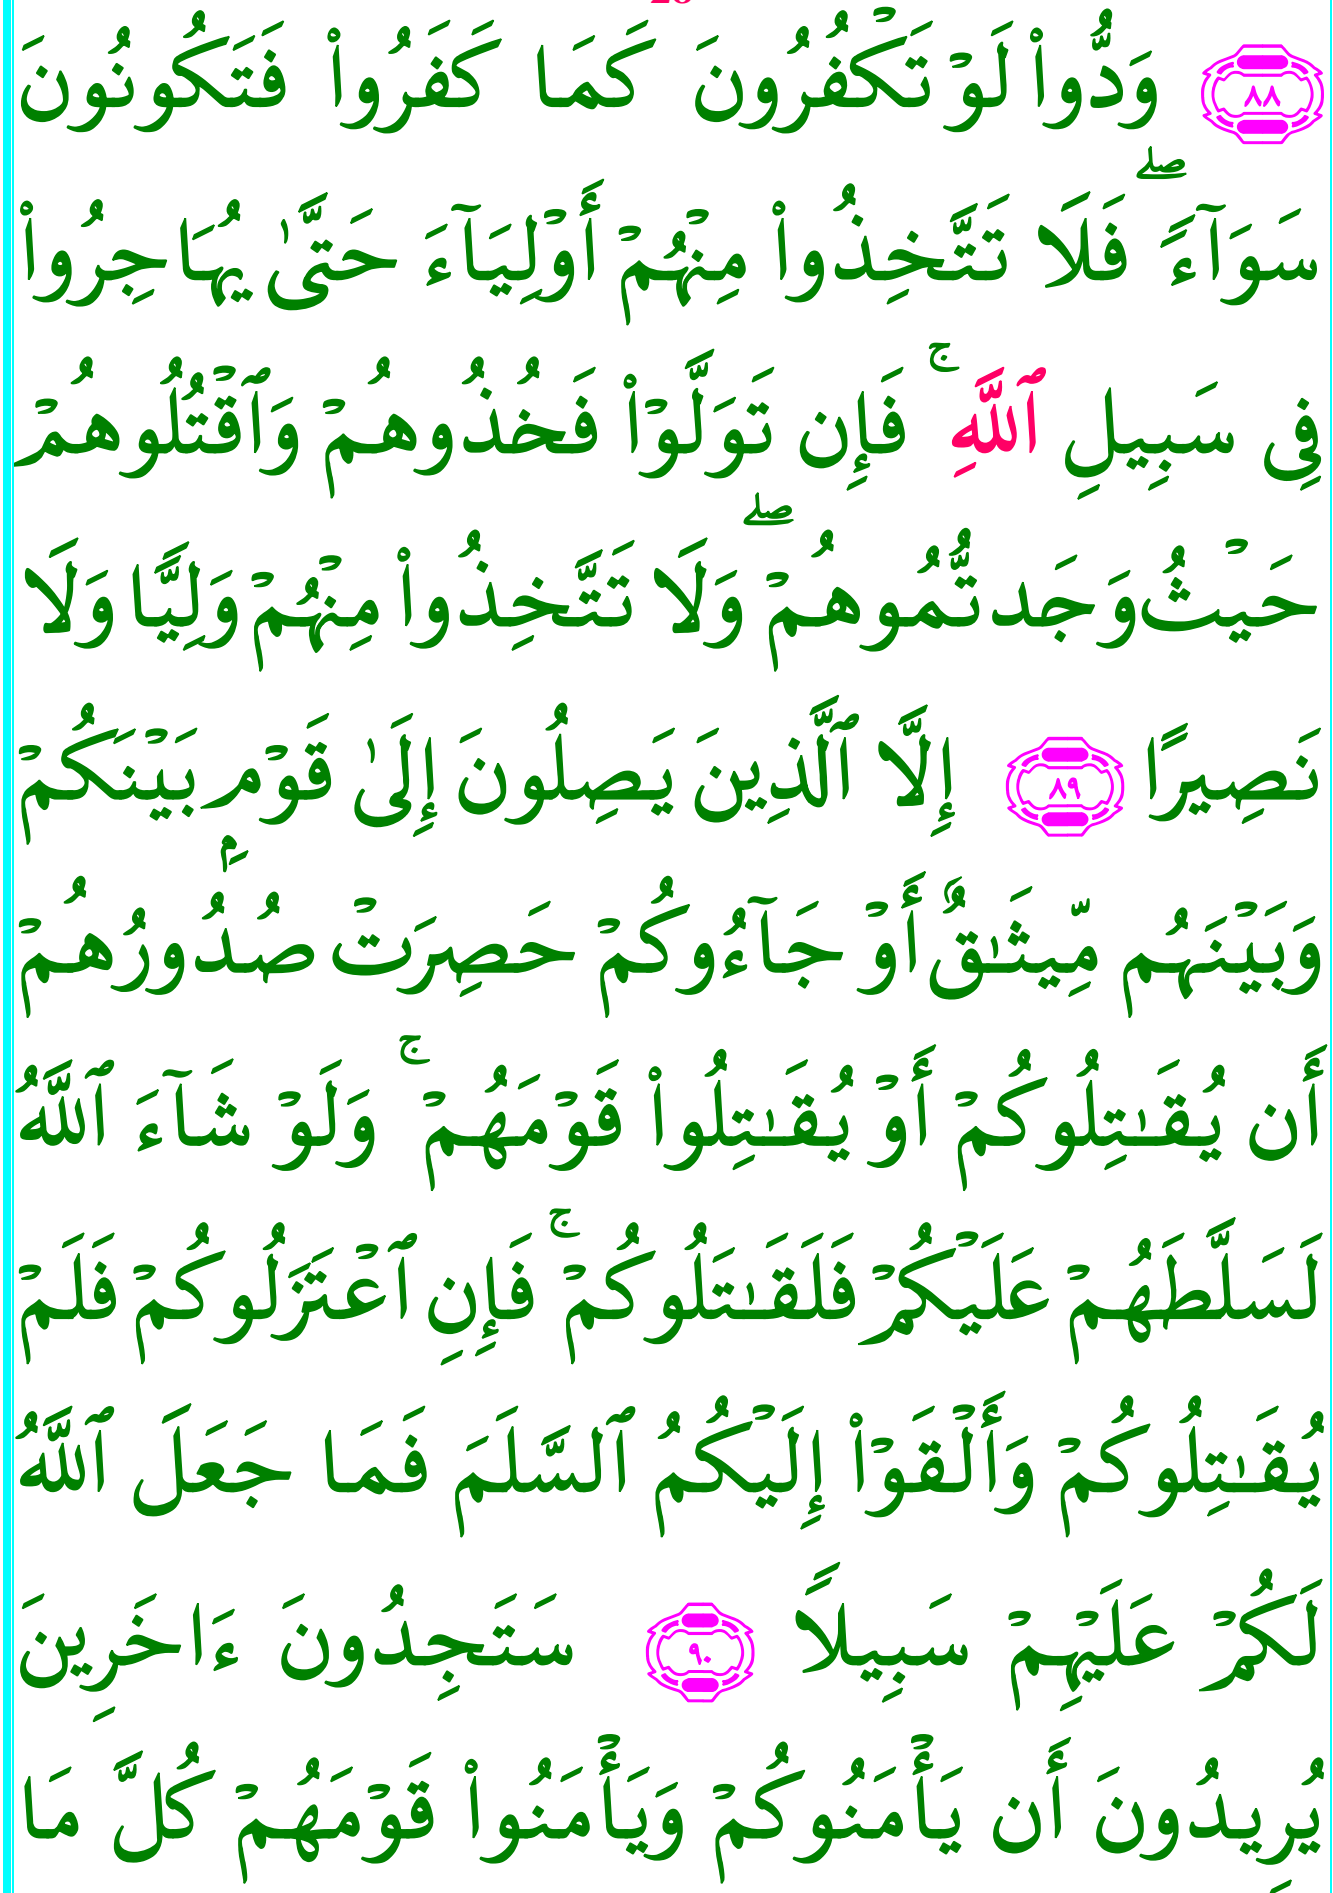 ﴿٨٨﴾ وَدُّوا۟ لَوْ تَكْفُرُونَ كَمَا كَفَرُوا۟ فَتَكُونُونَ
سَوَآءًۖ فَلَا تَتَّخِذُوا۟ مِنْهُمْ أَوْلِيَآءَ حَتَّىٰ يُهَاجِرُوا۟
فِى سَبِيلِ ٱللَّهِۚ فَإِن تَوَلَّوْا۟ فَخُذُوهُمْ وَٱقْتُلُوهُمْ
حَيْثُ وَجَدتُّمُوهُمْۖ وَلَا تَتَّخِذُوا۟ مِنْهُمْ وَلِيًّا وَلَا
نَصِيرًا ﴿٨٩﴾ إِلَّا ٱلَّذِينَ يَصِلُونَ إِلَىٰ قَوْمٍۭ بَيْنَكُمْ
وَبَيْنَهُم مِّيثَـٰقٌ أَوْ جَآءُوكُمْ حَصِرَتْ صُدُورُهُمْ
أَن يُقَـٰتِلُوكُمْ أَوْ يُقَـٰتِلُوا۟ قَوْمَهُمْۚ وَلَوْ شَآءَ ٱللَّهُ
لَسَلَّطَهُمْ عَلَيْكُمْ فَلَقَـٰتَلُوكُمْۚ فَإِنِ ٱعْتَزَلُوكُمْ فَلَمْ
يُقَـٰتِلُوكُمْ وَأَلْقَوْا۟ إِلَيْكُمُ ٱلسَّلَمَ فَمَا جَعَلَ ٱللَّهُ
لَكُمْ عَلَيْهِمْ سَبِيلًا ﴿٩٠﴾ سَتَجِدُونَ ءَاخَرِينَ
يُرِيدُونَ أَن يَأْمَنُوكُمْ وَيَأْمَنُوا۟ قَوْمَهُمْ كُلَّ مَا